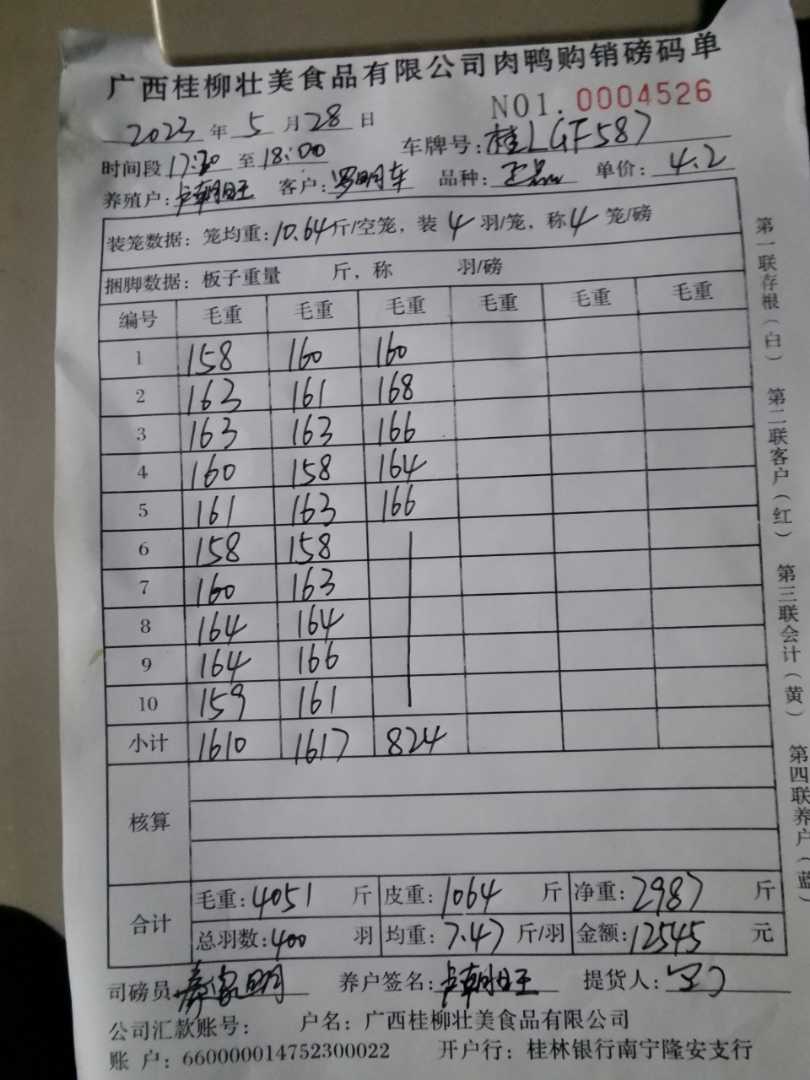 广西桂柳壮美食品有限公司肉鸭购销磅码单
NO1. 0004526
2023 年 5 月 28 日
时间段 17:30 至 18:00 车牌号: 桂LGF587
养殖户: 卢朝旺 客户: 罗明车 品种: 单价: 4.2
装笼数据: 笼均重: 10.64 斤/空笼, 装 4 羽/笼, 称 4 笼/磅
捆脚数据: 板子重量 斤, 称 羽/磅
编号 毛重 毛重 毛重 毛重 毛重 毛重
1 158 160 160
2 163 161 168
3 163 163 166
4 160 158 164
5 161 163 166
6 158 158
7 160 163
8 164 164
9 164 166
10 159 161
小计 1610 1617 824
核算
合计
毛重: 4051 斤 皮重: 1064 斤 净重: 2987 斤
总羽数: 400 羽 均重: 7.47 斤/羽 金额: 12545 元
司磅员 养户签名: 卢朝旺 提货人:
公司汇款账号: 户名: 广西桂柳壮美食品有限公司
账 户: 660000014752300022 开户行: 桂林银行南宁隆安支行
第一联存根(白) 第二联客户(红) 第三联会计(黄) 第四联养户(蓝)